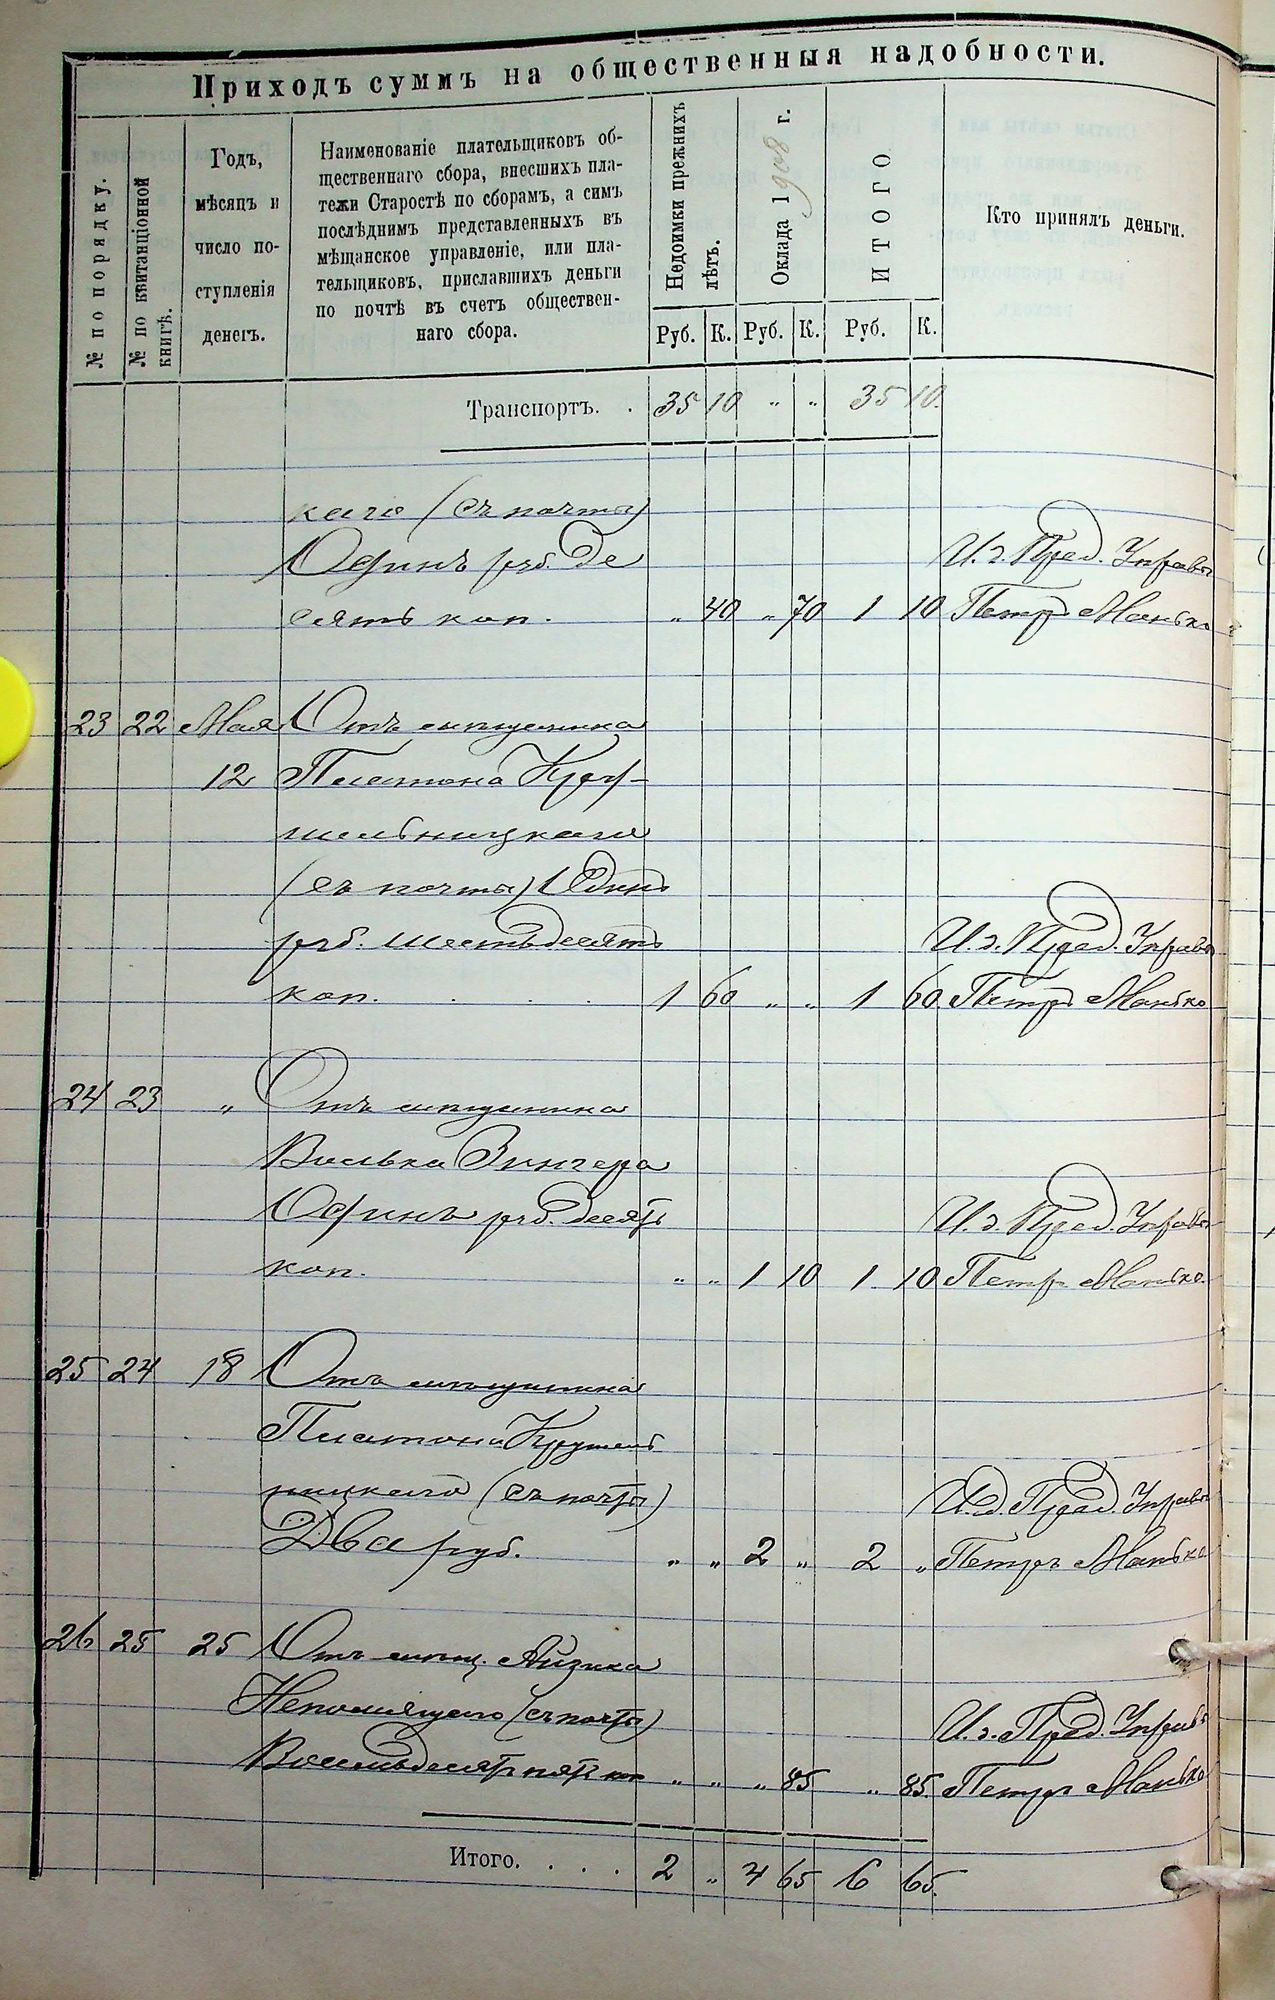 Приходъ суммъ на общественныя надобности.
№ по порядку.
№ по квитанціонной книгѣ.
Годъ,
мѣсяцъ и
число по-
ступленія
денегъ.
Наименованіе плательщиковъ об-
щественнаго сбора, внесшихъ пла-
тежи Старостѣ по сборамъ, а симъ
послѣднимъ представленныхъ въ
мѣщанское управленіе, или пла-
тельщиковъ, приславшихъ деньги
по почтѣ въ счетъ обществен-
наго сбора.
Недоимки прежнихъ
лѣтъ.
Оклада 1908 г.
ИТОГО
Кто принялъ деньги.
Руб. К. Руб. К. Руб. К.
Транспортъ. . 35 10 " " 35 10.
каго (съ почты)
Одинъ руб. де И. д. Пред. Управы
сять коп. " 40 " 70 1 10 Петръ Манько
23 22 Мая Отъ мѣщанина
12 Платона Кру-
шельницкаго
(съ почты) Одинъ
руб. шестьдесятъ И. д. Пред. Управы
коп. . . . . 1 60 " " 1 60 Петръ Манько
24 23 " Отъ мѣщанина
Волька Зингера
Одинъ руб. десять И. д. Пред. Управы
коп. " " 1 10 1 10 Петръ Манько.
25 24 18 Отъ мѣщанина
Платона Крушель
ницкаго (съ почты) И. д. Пред. Управы
Два руб. " " 2 " 2 " Петръ Манько
26 25 25 Отъ мѣщ. Айзика
Непомящаго (съ почты) И. д. Пред. Управы
Восемьдесятъ пять коп " " " 85 " 85. Петръ Манько
Итого. . . . 2 " 4 65 6 65.